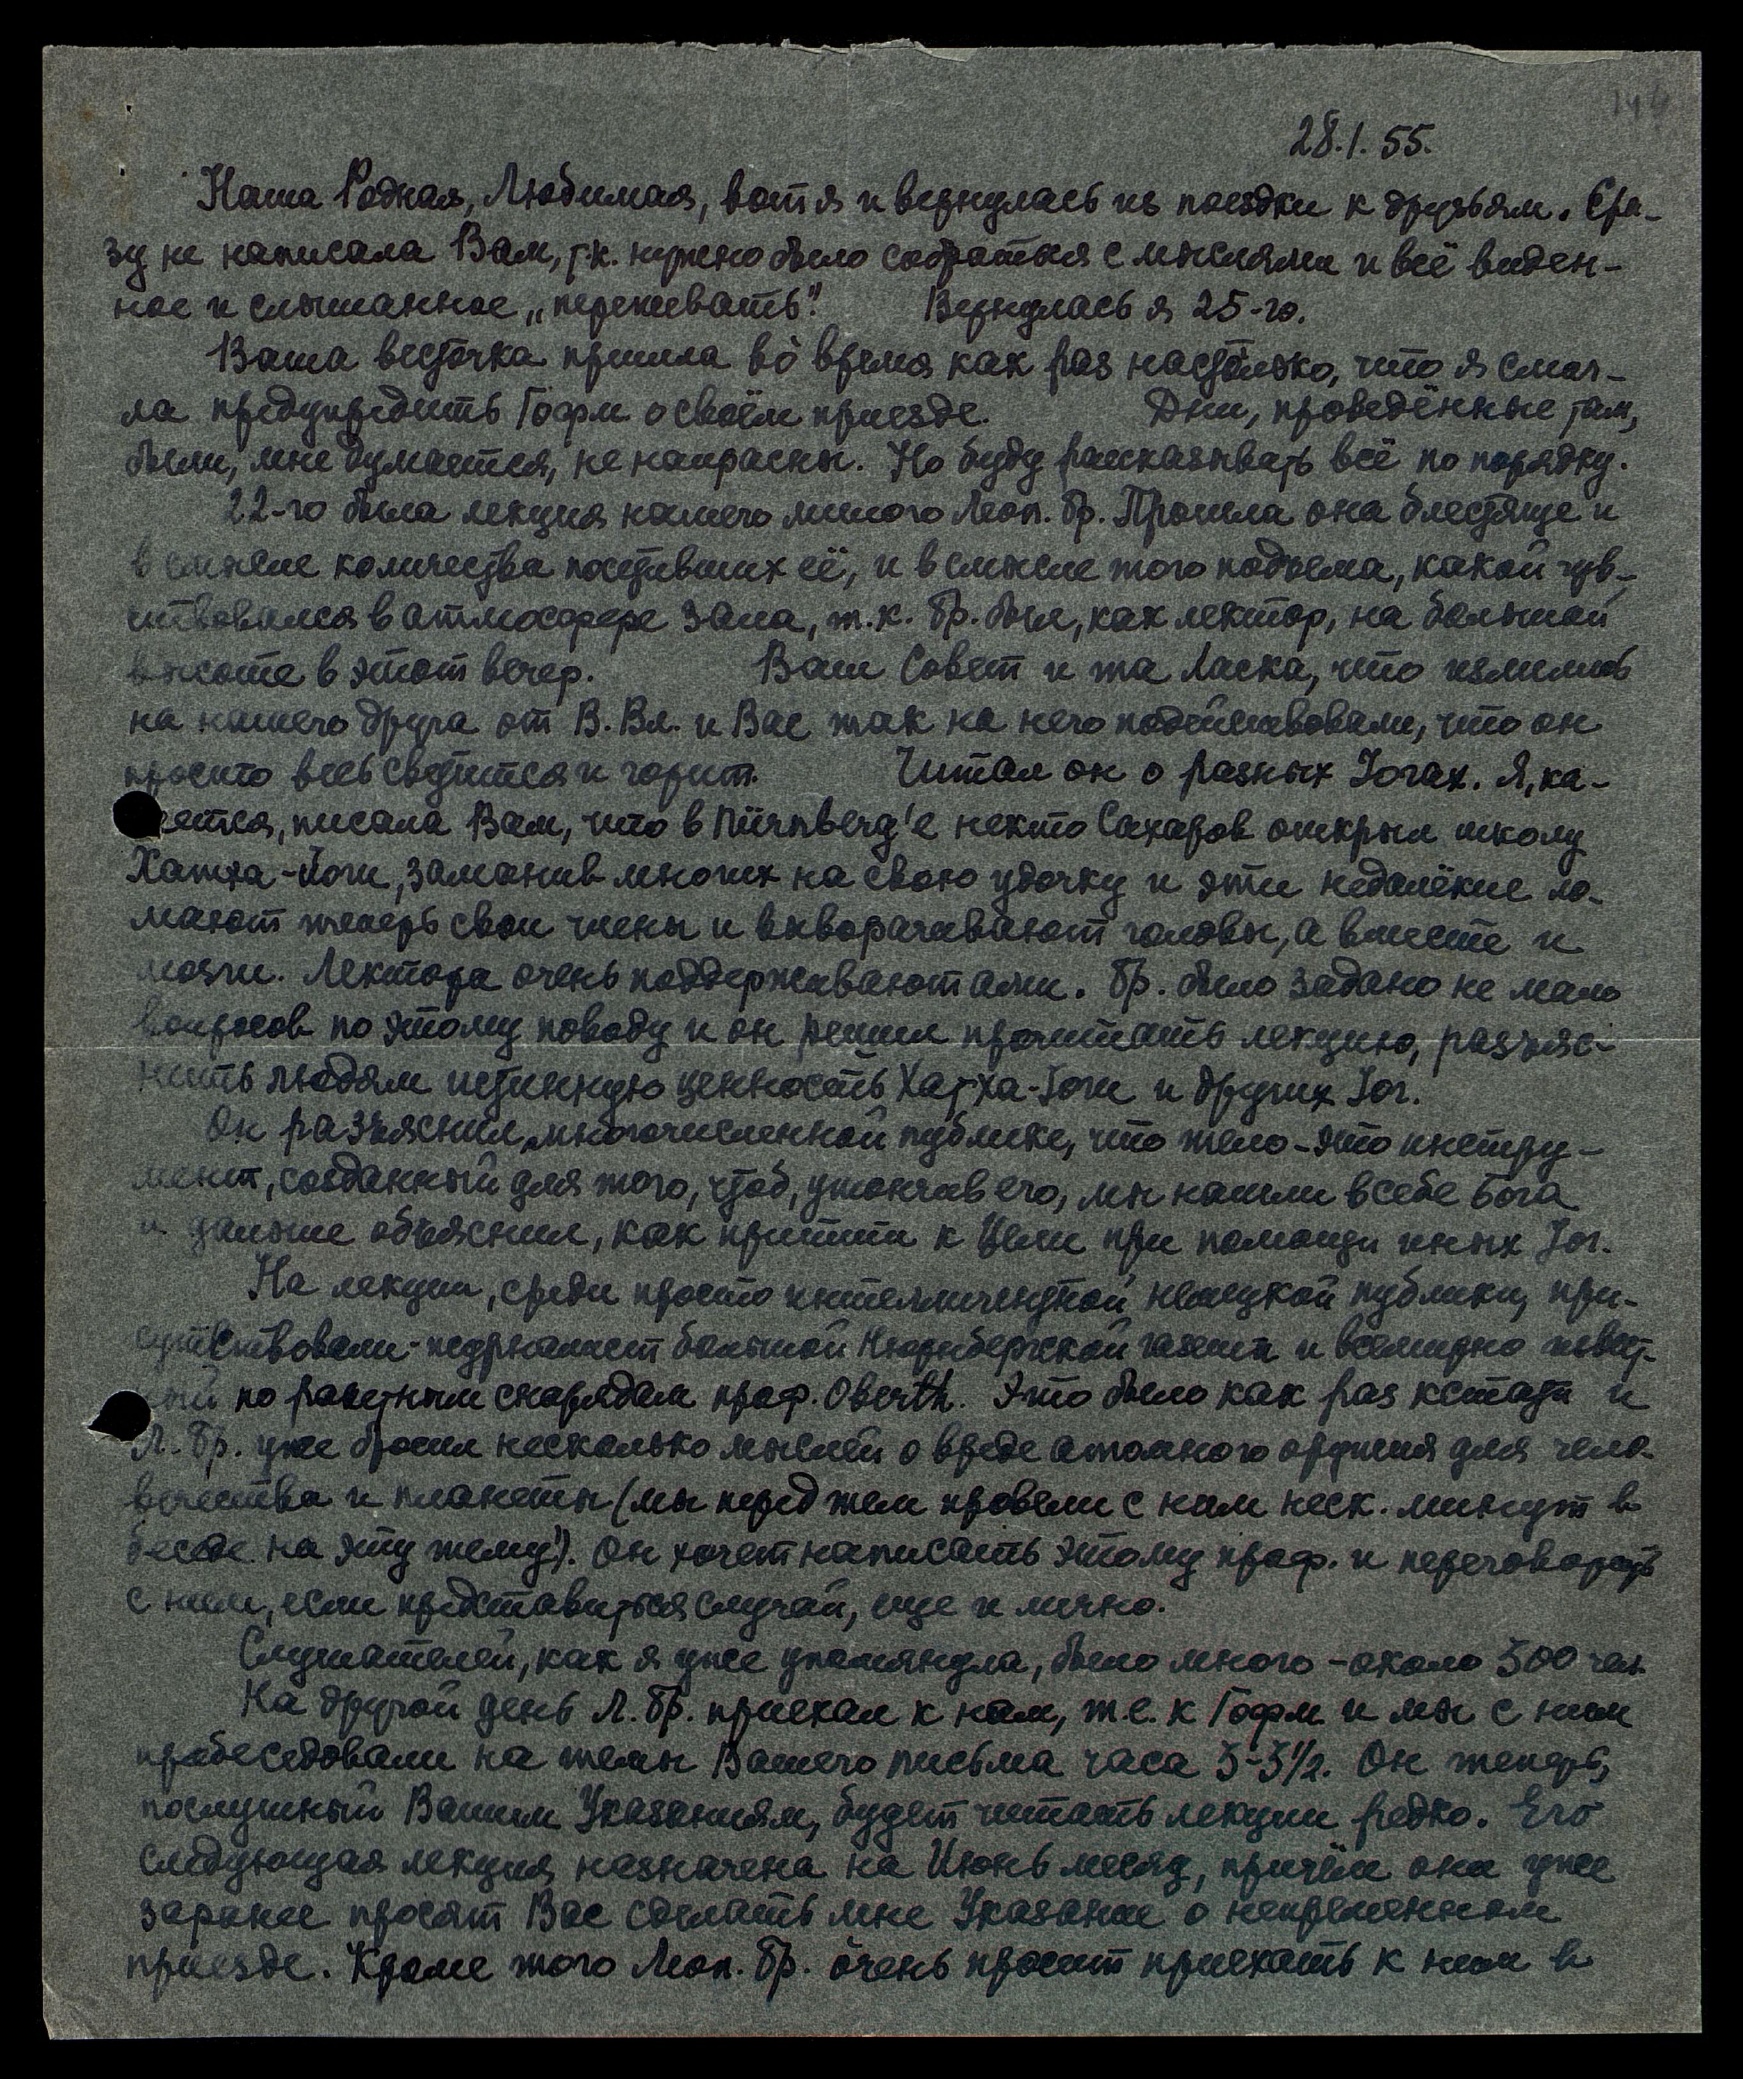 28.1.55.
Наша Родная, Любимая, вот я и вернулась из поездки к друзьям. Сра-
зу не написала Вам, т.к. нужно было собраться с мыслями и всё виден-
ное и слышанное „пережевать". Вернулась я 25-го.
Ваша весточка пришла во̀ время как раз настолько, что я смог-
ла предупредить Гофм о своём приезде. Дни, проведённые там,
были, мне думается, не напрасны. Но буду рассказывать всё по порядку.
22-го была лекция нашего милого Леоп. Бр. Прошла она блестяще и
в смысле количества посетивших её, и в смысле того подъема, какой чув-
ствовался в атмосфере зала, т.к. Бр. был, как лектор, на большой
высоте в этот вечер. Ваш Совет и та Ласка, что излились
на нашего друга от В. Вл. и Вас так на него подействовали, что он
просто весь светится и горит. Читал он о разных Iогах. Я, ка-
жется, писала Вам, что в Nürnberg'е некто Сахаров открыл школу
Хатха-Йоги, заманив многих на свою удочку и эти недалёкие ло-
мают теперь свои члены и выворачивают головы, а вместе и
мозги. Лектора очень поддерживают . Бр. было задано не мало
вопросов по этому поводу и он решил прочитать лекцию, разъяс-
нить людям истинную ценность Хатха-Iоги и других Iог.
Он разъяснил многочисленной публике, что тело - это инстру-
мент, созданный для того, чтоб, утончив его, мы нашли в себе Бога
и дальше объяснил, как притти к Цели при помощи иных Iог.
На лекции, среди просто интеллигентной немецкой публики, при-
сутствовали - журналист большой Нюрнбергской газеты и всемирно извест-
ный по ракетным снарядам проф. Oberth. Это было как раз кстати и
Л. Бр. уже бросил несколько мыслей о вреде атомного оружия для чело-
вечества и планеты (мы перед тем провели с ним неск. минут в
беседе на эту тему!). Он хочет написать этому проф. и переговорить
с ним, если представиться случай, еще и лично.
Слушателей, как я уже упомянула, было много - около 300 чел.
На другой день Л. Бр. приехал к нам, т.е. к Гофм и мы с ним
пробеседовали на темы Вашего письма часа 3-3 1/2. Он теперь,
послушный Вашим Указаниям, будет читать лекции редко. Его
следующая лекция назначена на Июнь месяц, причём они уже
заранее просят Вас сослать мне Указание о непременном
приезде. Кроме того Леоп. Бр. очень просит приехать к ним в